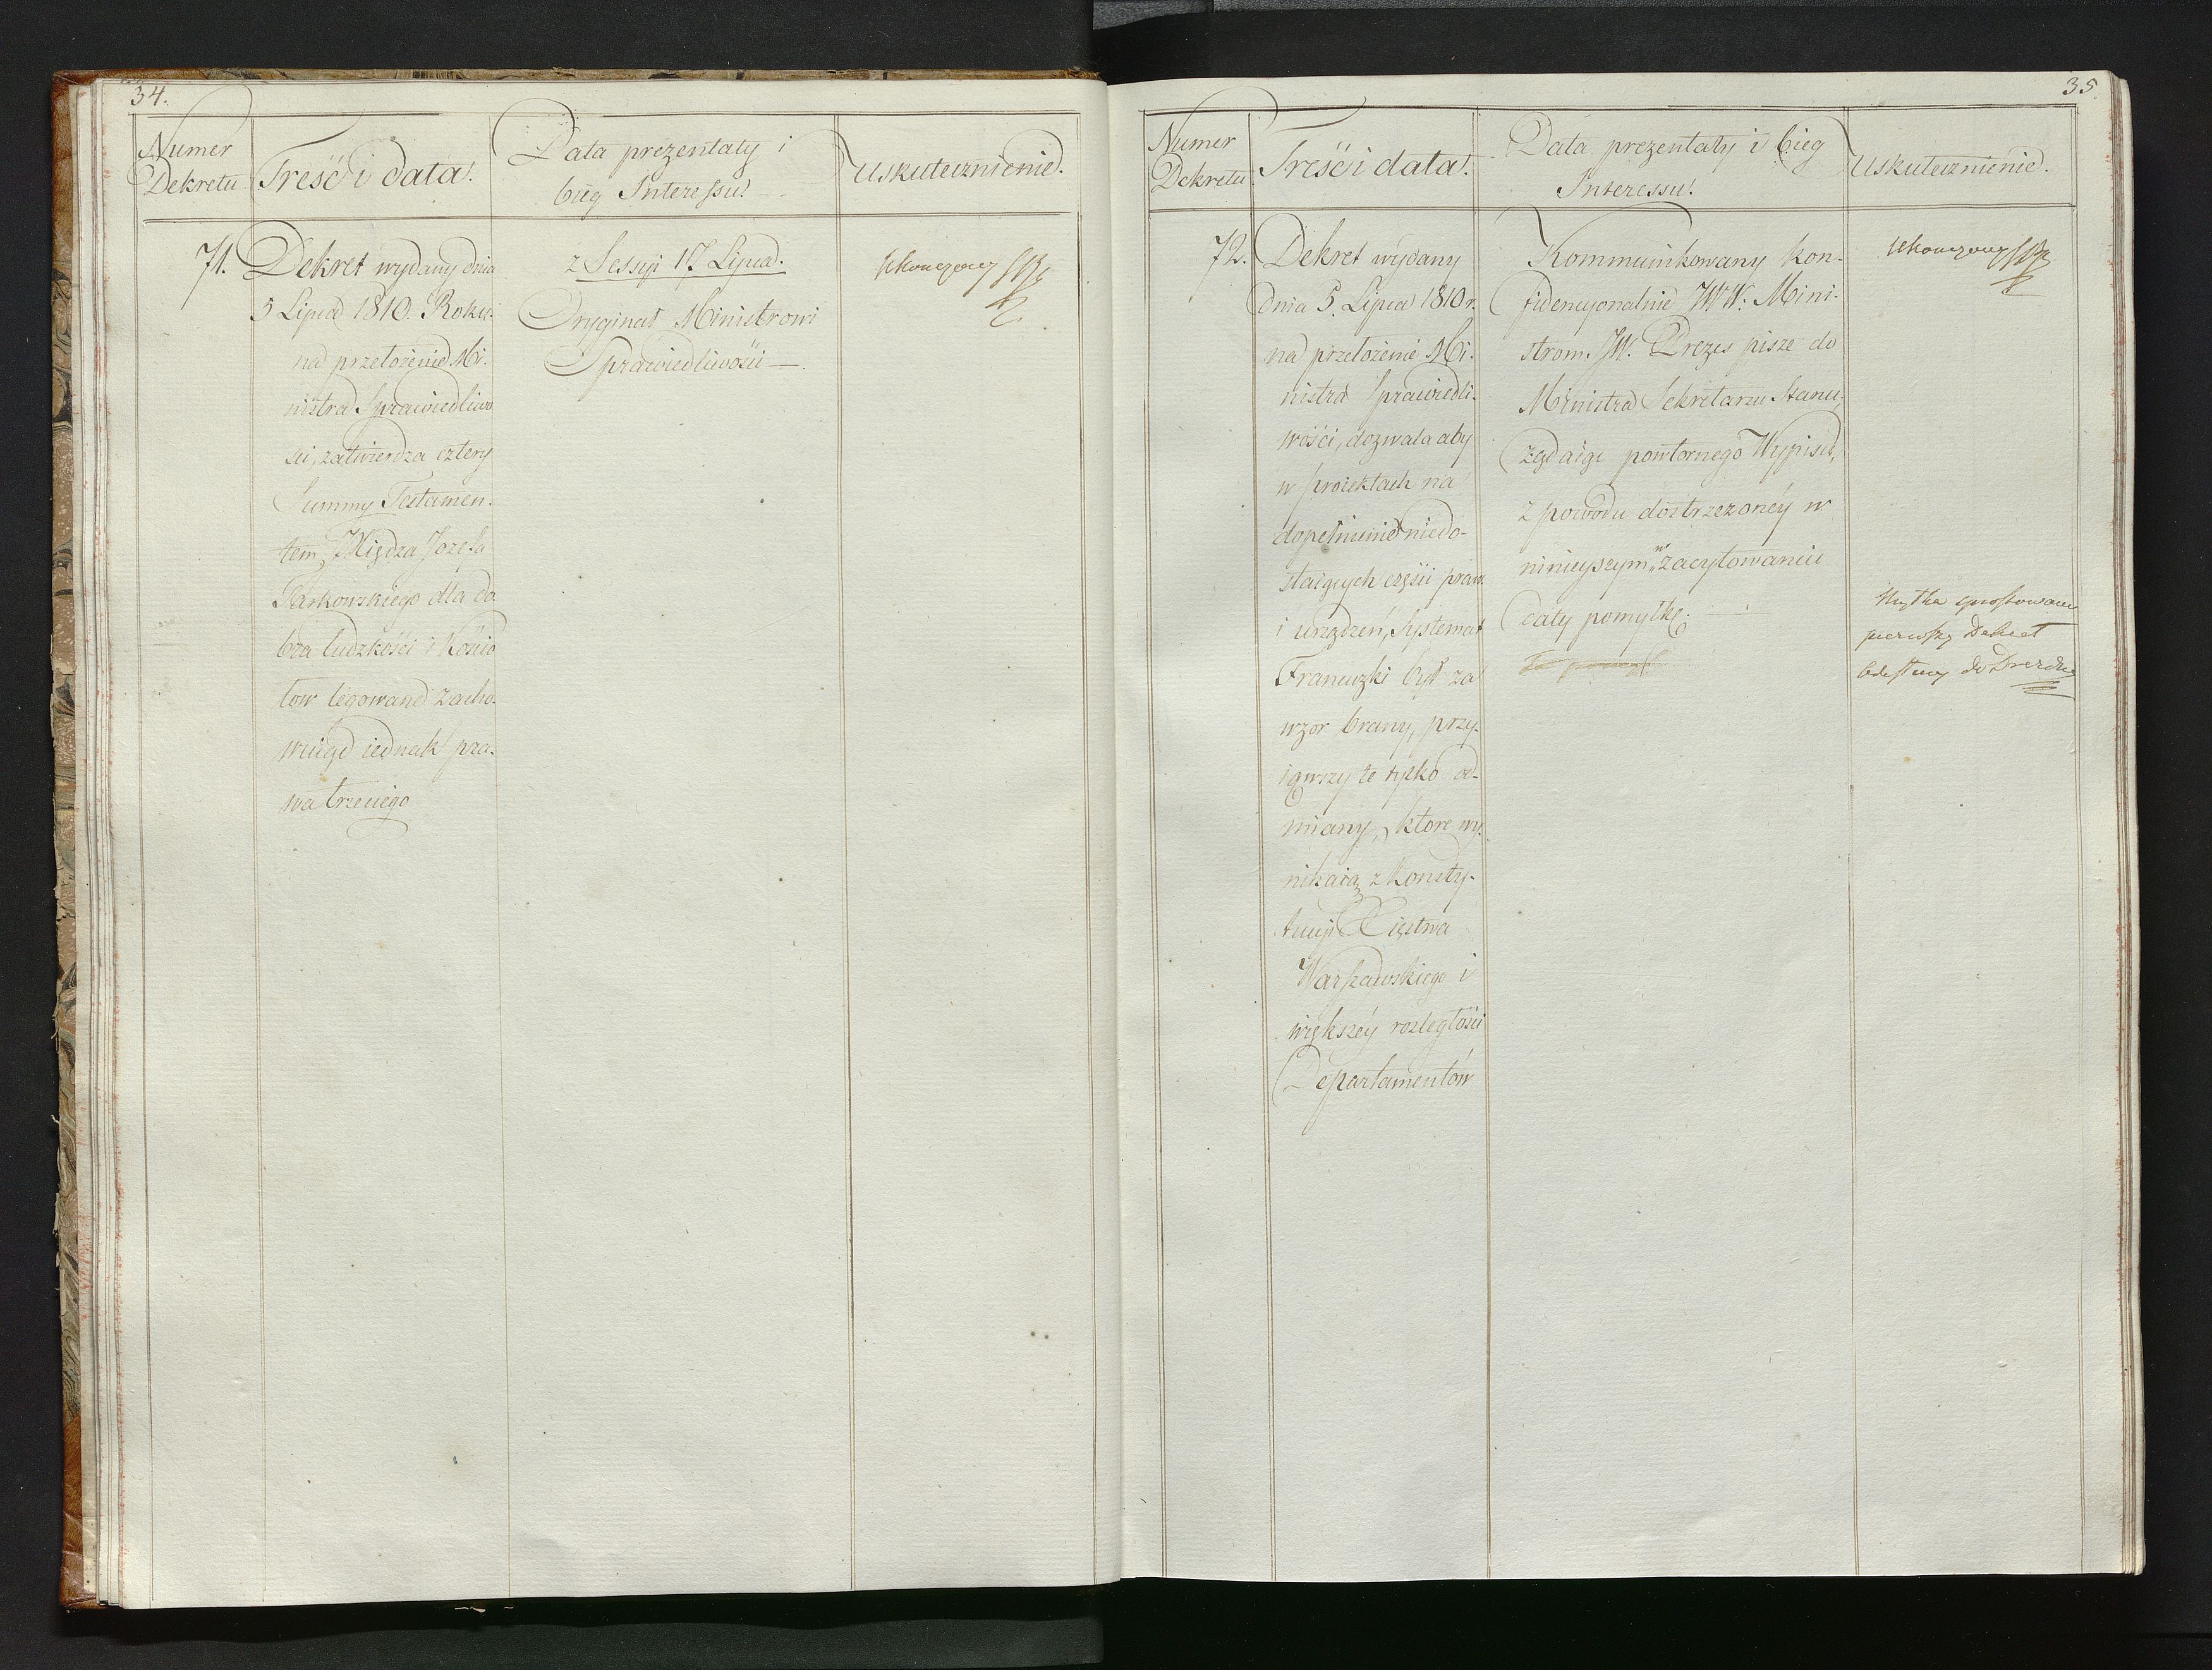 34.
Numer
Dekretu
Treść i data.
Data prezentaty i
bieg Interessu.
Uskutecznienie.
71.
Dekret wydany dnia
5 Lipca 1810. Roku.
na przełożenie Mi-
nistra Sprawiedliwo
ści, zatwierdza cztery
Summy Testamen-
tem Xiędza Jozefa
Tarkowskiego dla do
bra ludzkości i Kościo
łow legowane zacho-
wuiąc iednak pra-
wa trzeciego
z Sessyi 17 Lipca.
Oryginał Ministrowi
Sprawiedliwości —.
Ukończony
35.
Numer
Dekretu
Treść i data.
Data prezentaty i bieg
Interessu.
Uskutecznienie.
72.
Dekret wydany
dnia 5. Lipca 1810 r.
na przełożenie Mi-
nistra Sprawiedli-
wości, dozwala aby
w proiektach na
dopełnienie niedo-
staiących części praw
i urządzeń, Systemat
Francuzki był za
wzor brany, przy-
iąwszy te tylko od-
miany, ktore wy-
nikaią z Konsty-
tucyi Xięstwa
Warszawskiego i
większéy rozległości
Departamentów
Kommunikowany kon-
fidencyonalnie JWW. Mini-
strom. JW. Prezes pisze do
Ministra Sekretarza Stanu,
żądaiąc powtornego Wypisu,
z powodu dostrzeżonéy w
ninieyszym w zacytowaniu
daty pomyłki.
Ukończony
Myłka sprostowana
pierwszy Dekret
odesłany do Drezna